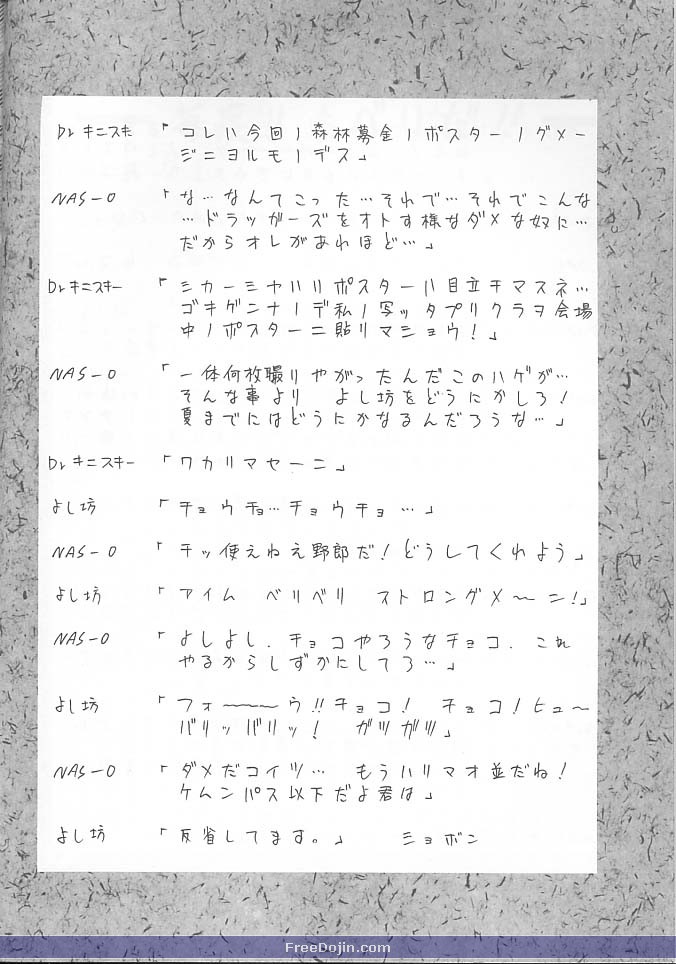 Dr.キニスキー 「コレハ今回ノ森林募金ノポスターノグメー
ジニヨルモノデス」
NAS-0 「な…なんてこった…それで…それでこんな
…ドラッガーズをオトす様なダメな奴に…
だからオレがあれほど…」
Dr.キニスキー 「ミカーミヤハリポスターハ目立チマスネ…
ゴキゲンナノデ私ノ写ッタプリクラヲ会場
中ノポスターニ貼リマショウ!」
NAS-0 「一体何枚撮りやがったんだこのハゲが…
そんな事より よし坊をどうにかしろ!
夏までにはどうにかなるんだろうな…」
Dr.キニスキー 「ワカリマセーニ」
よし坊 「チョウチョ…チョウチョ…」
NAS-0 「チッ使えねえ野郎だ!どうしてくれよう」
よし坊 「アイム ベリベリ ストロングメ〜ン!」
NAS-0 「よしよし.チョコやろうなチョコ.これ
やるからしずかにしてろ…」
よし坊 「フォ〜〜〜ウ!!チョコ! チョコ!ヒュ〜
バリッバリッ! ガツガツ」
NAS-0 「ダメだコイツ… もうハリマオ並だね!
ケムンパス以下だよ君は」
よし坊 「反省してます。」 ショボン
FreeDojin.com